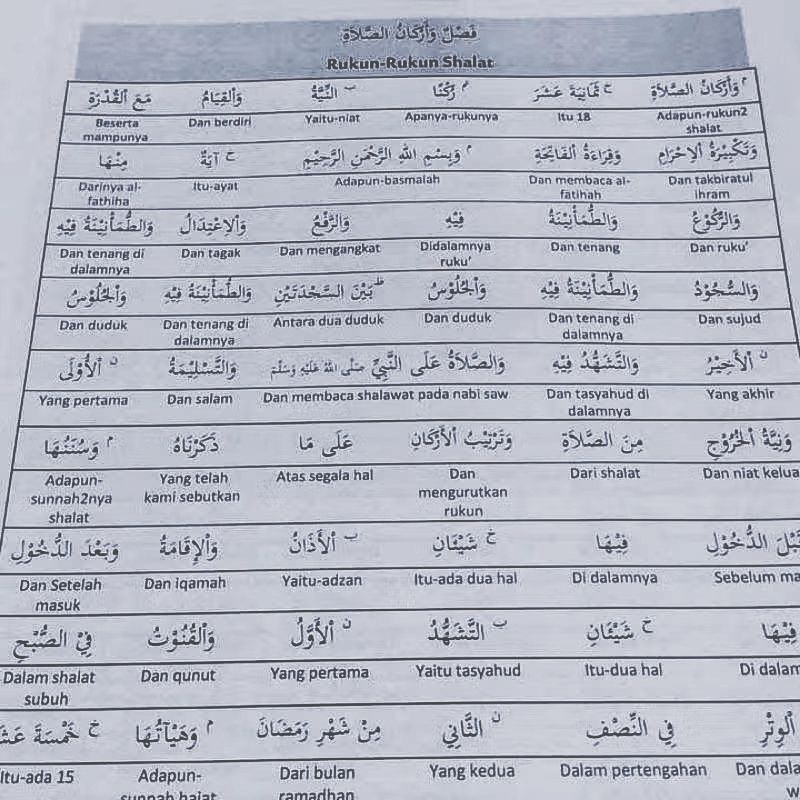 فَصْلٌ وَأَرْكَانُ الصَّلَاةِ
Rukun-Rukun Shalat
م وَأَرْكَانُ الصَّلَاةِ خ ثَمَانِيَةَ عَشَرَ م رُكْنًا ب النِّيَّةُ وَالْقِيَامُ مَعَ الْقُدْرَةِ
Beserta mampunya Dan berdiri Yaitu-niat Apanya-rukunya Itu 18 Adapun-rukun2 shalat
وَتَكْبِيْرَةُ الْاِحْرَامِ وَقِرَاءَةُ الْفَاتِحَةِ م وَبِسْمِ اللهِ الرَّحْمٰنِ الرَّحِيْمِ خ آيَةٌ مِنْهَا
Darinya al-fathiha Itu-ayat Adapun-basmalah Dan membaca al-fatihah Dan takbiratul ihram
وَالرُّكُوْعُ وَالطُّمَأْنِيْنَةُ فِيْهِ وَالرَّفْعُ وَالْاِعْتِدَالُ وَالطُّمَأْنِيْنَةُ فِيْهِ
Dan tenang di dalamnya Dan tagak Dan mengangkat Didalamnya ruku' Dan tenang Dan ruku'
وَالسُّجُوْدُ وَالطُّمَأْنِيْنَةُ فِيْهِ وَالْجُلُوْسُ ظ بَيْنَ السَّجْدَتَيْنِ وَالطُّمَأْنِيْنَةُ فِيْهِ وَالْجُلُوْسُ
Dan duduk Dan tenang di dalamnya Antara dua duduk Dan duduk Dan tenang di dalamnya Dan sujud
ن الْأَخِيْرُ وَالتَّشَهُّدُ فِيْهِ وَالصَّلَاةُ عَلَى النَّبِيِّ صَلَّى اللهُ عَلَيْهِ وَسَلَّمَ وَالتَّسْلِيْمَةُ ن الْأُوْلَى
Yang pertama Dan salam Dan membaca shalawat pada nabi saw Dan tasyahud di dalamnya Yang akhir
وَنِيَّةُ الْخُرُوْجِ مِنَ الصَّلَاةِ وَتَرْتِيْبُ الْأَرْكَانِ عَلَى مَا ذَكَرْنَاهُ م وَسُنَنُهَا
Adapun-sunnah2nya shalat Yang telah kami sebutkan Atas segala hal Dan mengurutkan rukun Dari shalat Dan niat kelua
قَبْلَ الدُّخُوْلِ فِيْهَا خ شَيْئَانِ ب الْأَذَانُ وَالْإِقَامَةُ وَبَعْدَ الدُّخُوْلِ
Dan Setelah masuk Dan iqamah Yaitu-adzan Itu-ada dua hal Di dalamnya Sebelum ma
فِيْهَا خ شَيْئَانِ ب التَّشَهُّدُ ن الْأَوَّلُ وَالْقُنُوْتُ فِيْ الصُّبْحِ
Dalam shalat subuh Dan qunut Yang pertama Yaitu tasyahud Itu-dua hal Di dalam
الْوِتْرِ فِي النِّصْفِ ن الثَّانِي مِنْ شَهْرِ رَمَضَانَ م وَهَيْآتُهَا خ خَمْسَةَ عَشَ
Itu-ada 15 Adapun-sunnah haiat Dari bulan ramadhan Yang kedua Dalam pertengahan Dan dala